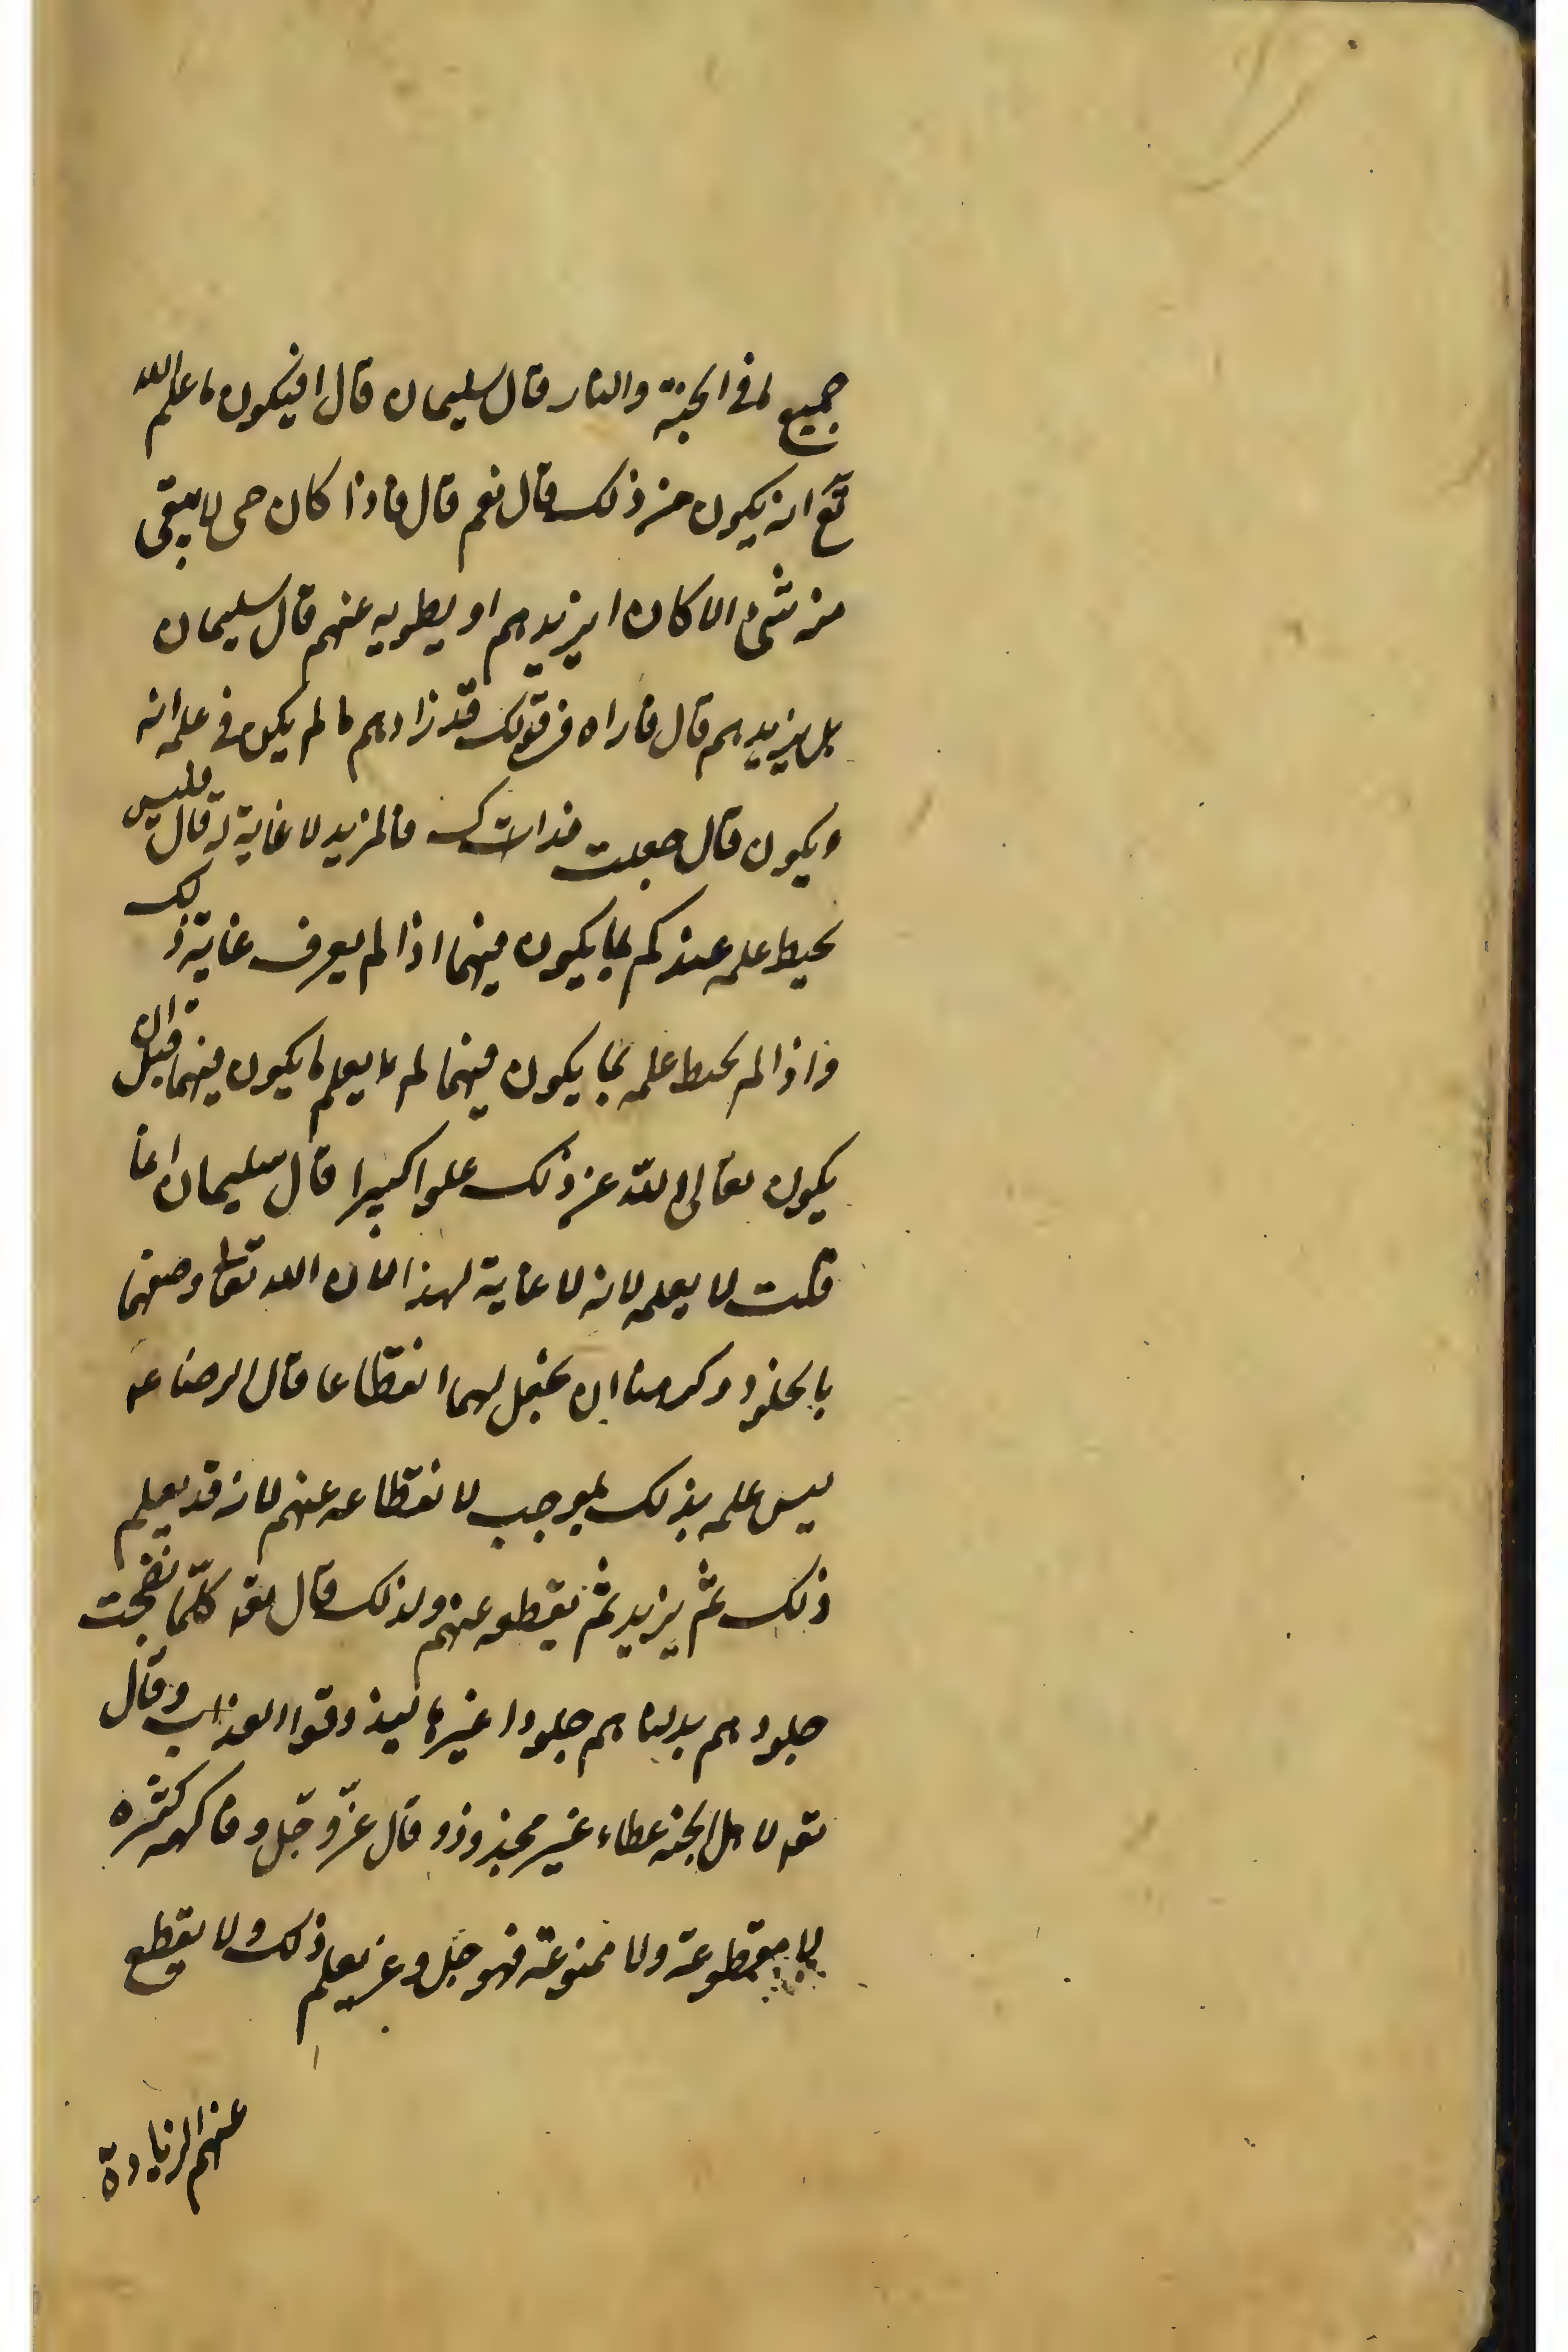 جميع ما في الجنة والنار قال سليمان قال افيكون ما علم الله
تع انه يكون من ذلك قال نعم قال فاذا كان حتى لا يبقى
منه شئ الا كان ايزيدهم او يطويه عنهم قال سليمان
بل يزيدهم قال فاراه في قولك قد زادهم ما لم يكن في علمه انه
ويكون قال جعلت فداك فالمزيد لا غاية له قال فليس
يحيط علمه عندكم بما يكون فيهما اذا لم يعرف غاية ذلك
واذا لم يحط علمه بما يكون فيهما لم يعلم ما يكون فيهما قبل ان
يكون تعالى الله عن ذلك علوا كبيرا قال سليمان انما
قلت لا يعلمه لانه لا غاية لهذا لان الله تعالى وصفهما
بالخلود وكرهنا ان نجعل لهما انقطاعا قال الرضا عه
ليس علمه بذلك بموجب لانقطاعه عنهم لانه قد يعلم
ذلك ثم يزيد ثم يقطعه عنهم ولذلك قال تعه كلّما نضجت
جلودهم بدلناهم جلودا غيرها ليذوقوا العذاب وقال
تعه لاهل الجنه عطاء غير مجذوذ وقال عزّ وجل وفاكهه كثيره
لا مقطوعة ولا ممنوعة فهو جل وعز يعلم ذلك ولا يقطع
عنهم الزيادة